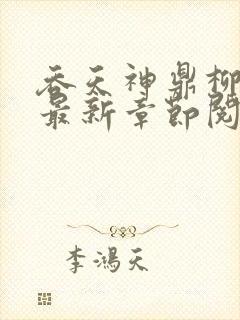 吞天神鼎柳
最新章節閱
李鴻天